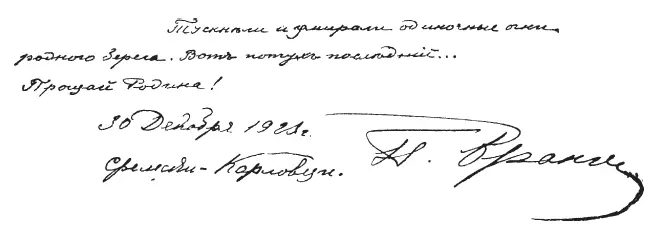 Тускнѣли и умирали одиночные огни
родного берега. Вотъ потухъ послѣдній...
Прощай Родина!
30 Декабря 1923г.
Сремски-Карловци.
П. Врангель